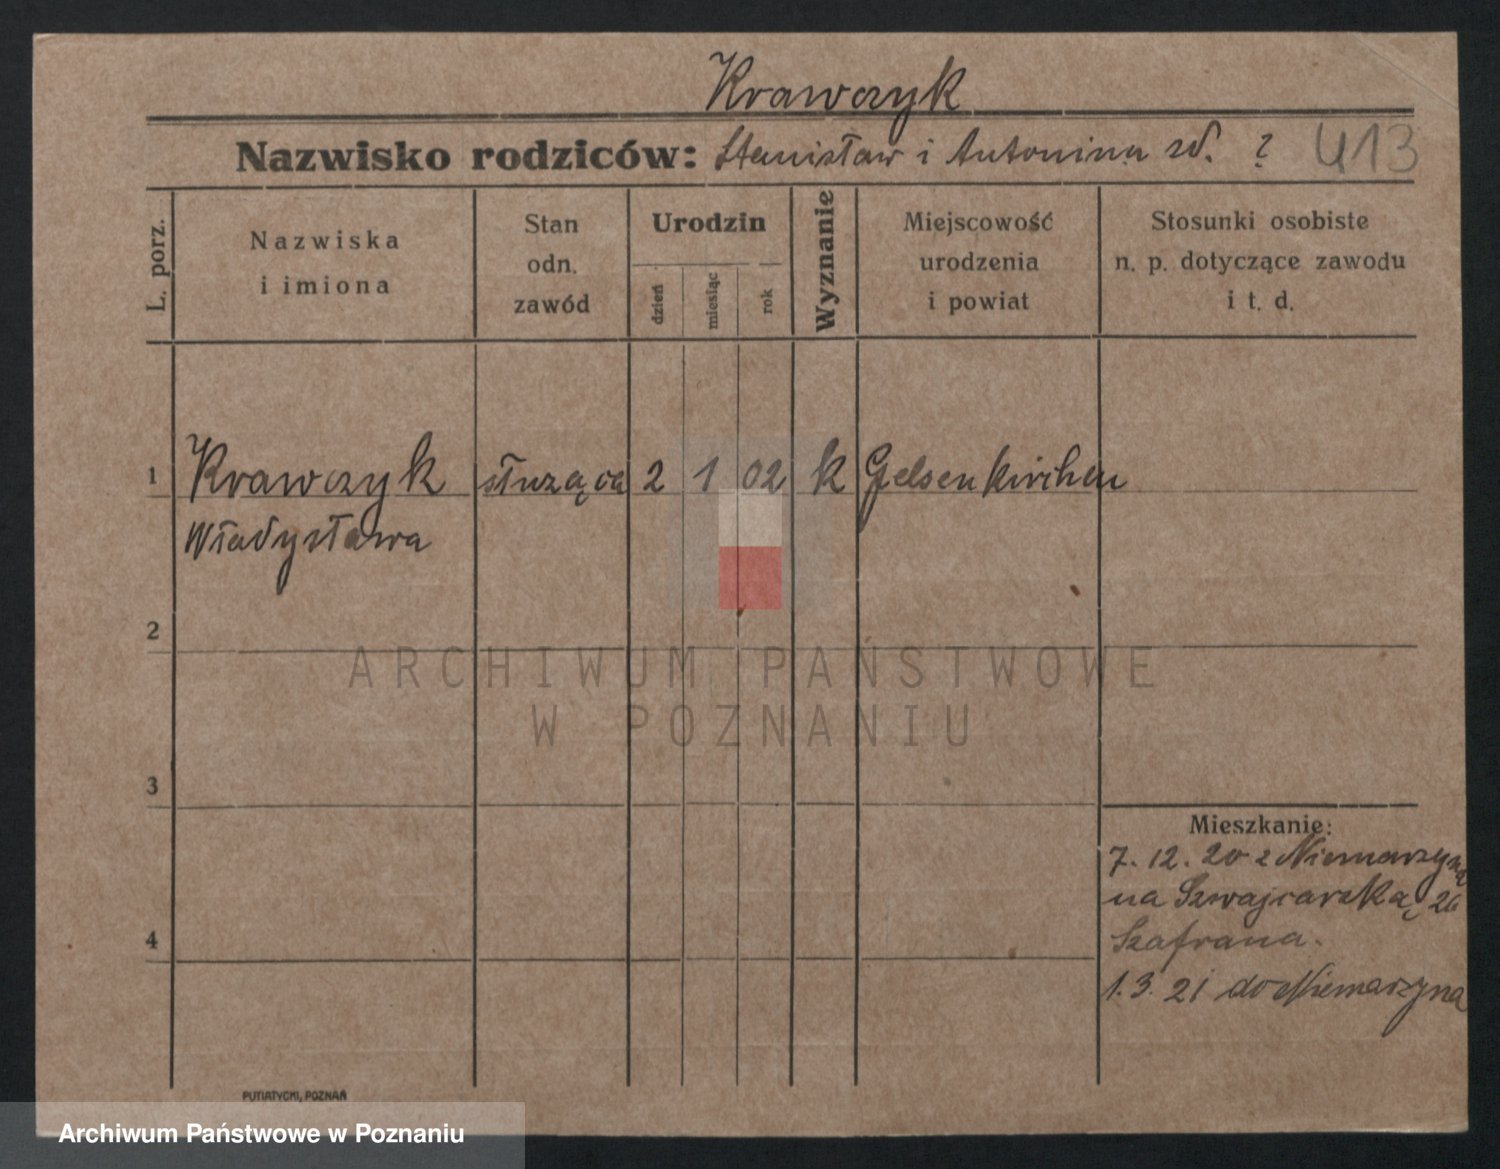 Krawczyk
Nazwisko rodziców: Stanisław i Antonina zd. ? 413
L. porz.
Nazwiska i imiona
Stan odn. zawód
Urodzin
dzień miesiąc rok
Wyznanie
Miejscowość urodzenia i powiat
Stosunki osobiste n. p. dotyczące zawodu i t. d.
1 Krawczyk służąca 2 1 02 k Gelsenkirchen
Władysława
2
ARCHIWUM PAŃSTWOWE
W POZNANIU
3
Mieszkanie:
7. 12. 20 z Niemarzyna
na Szwajcarska, 26
Szafrana.
4
1. 3. 21 do Niemarzyna
PUTIATYCKI, POZNAŃ
Archiwum Państwowe w Poznaniu